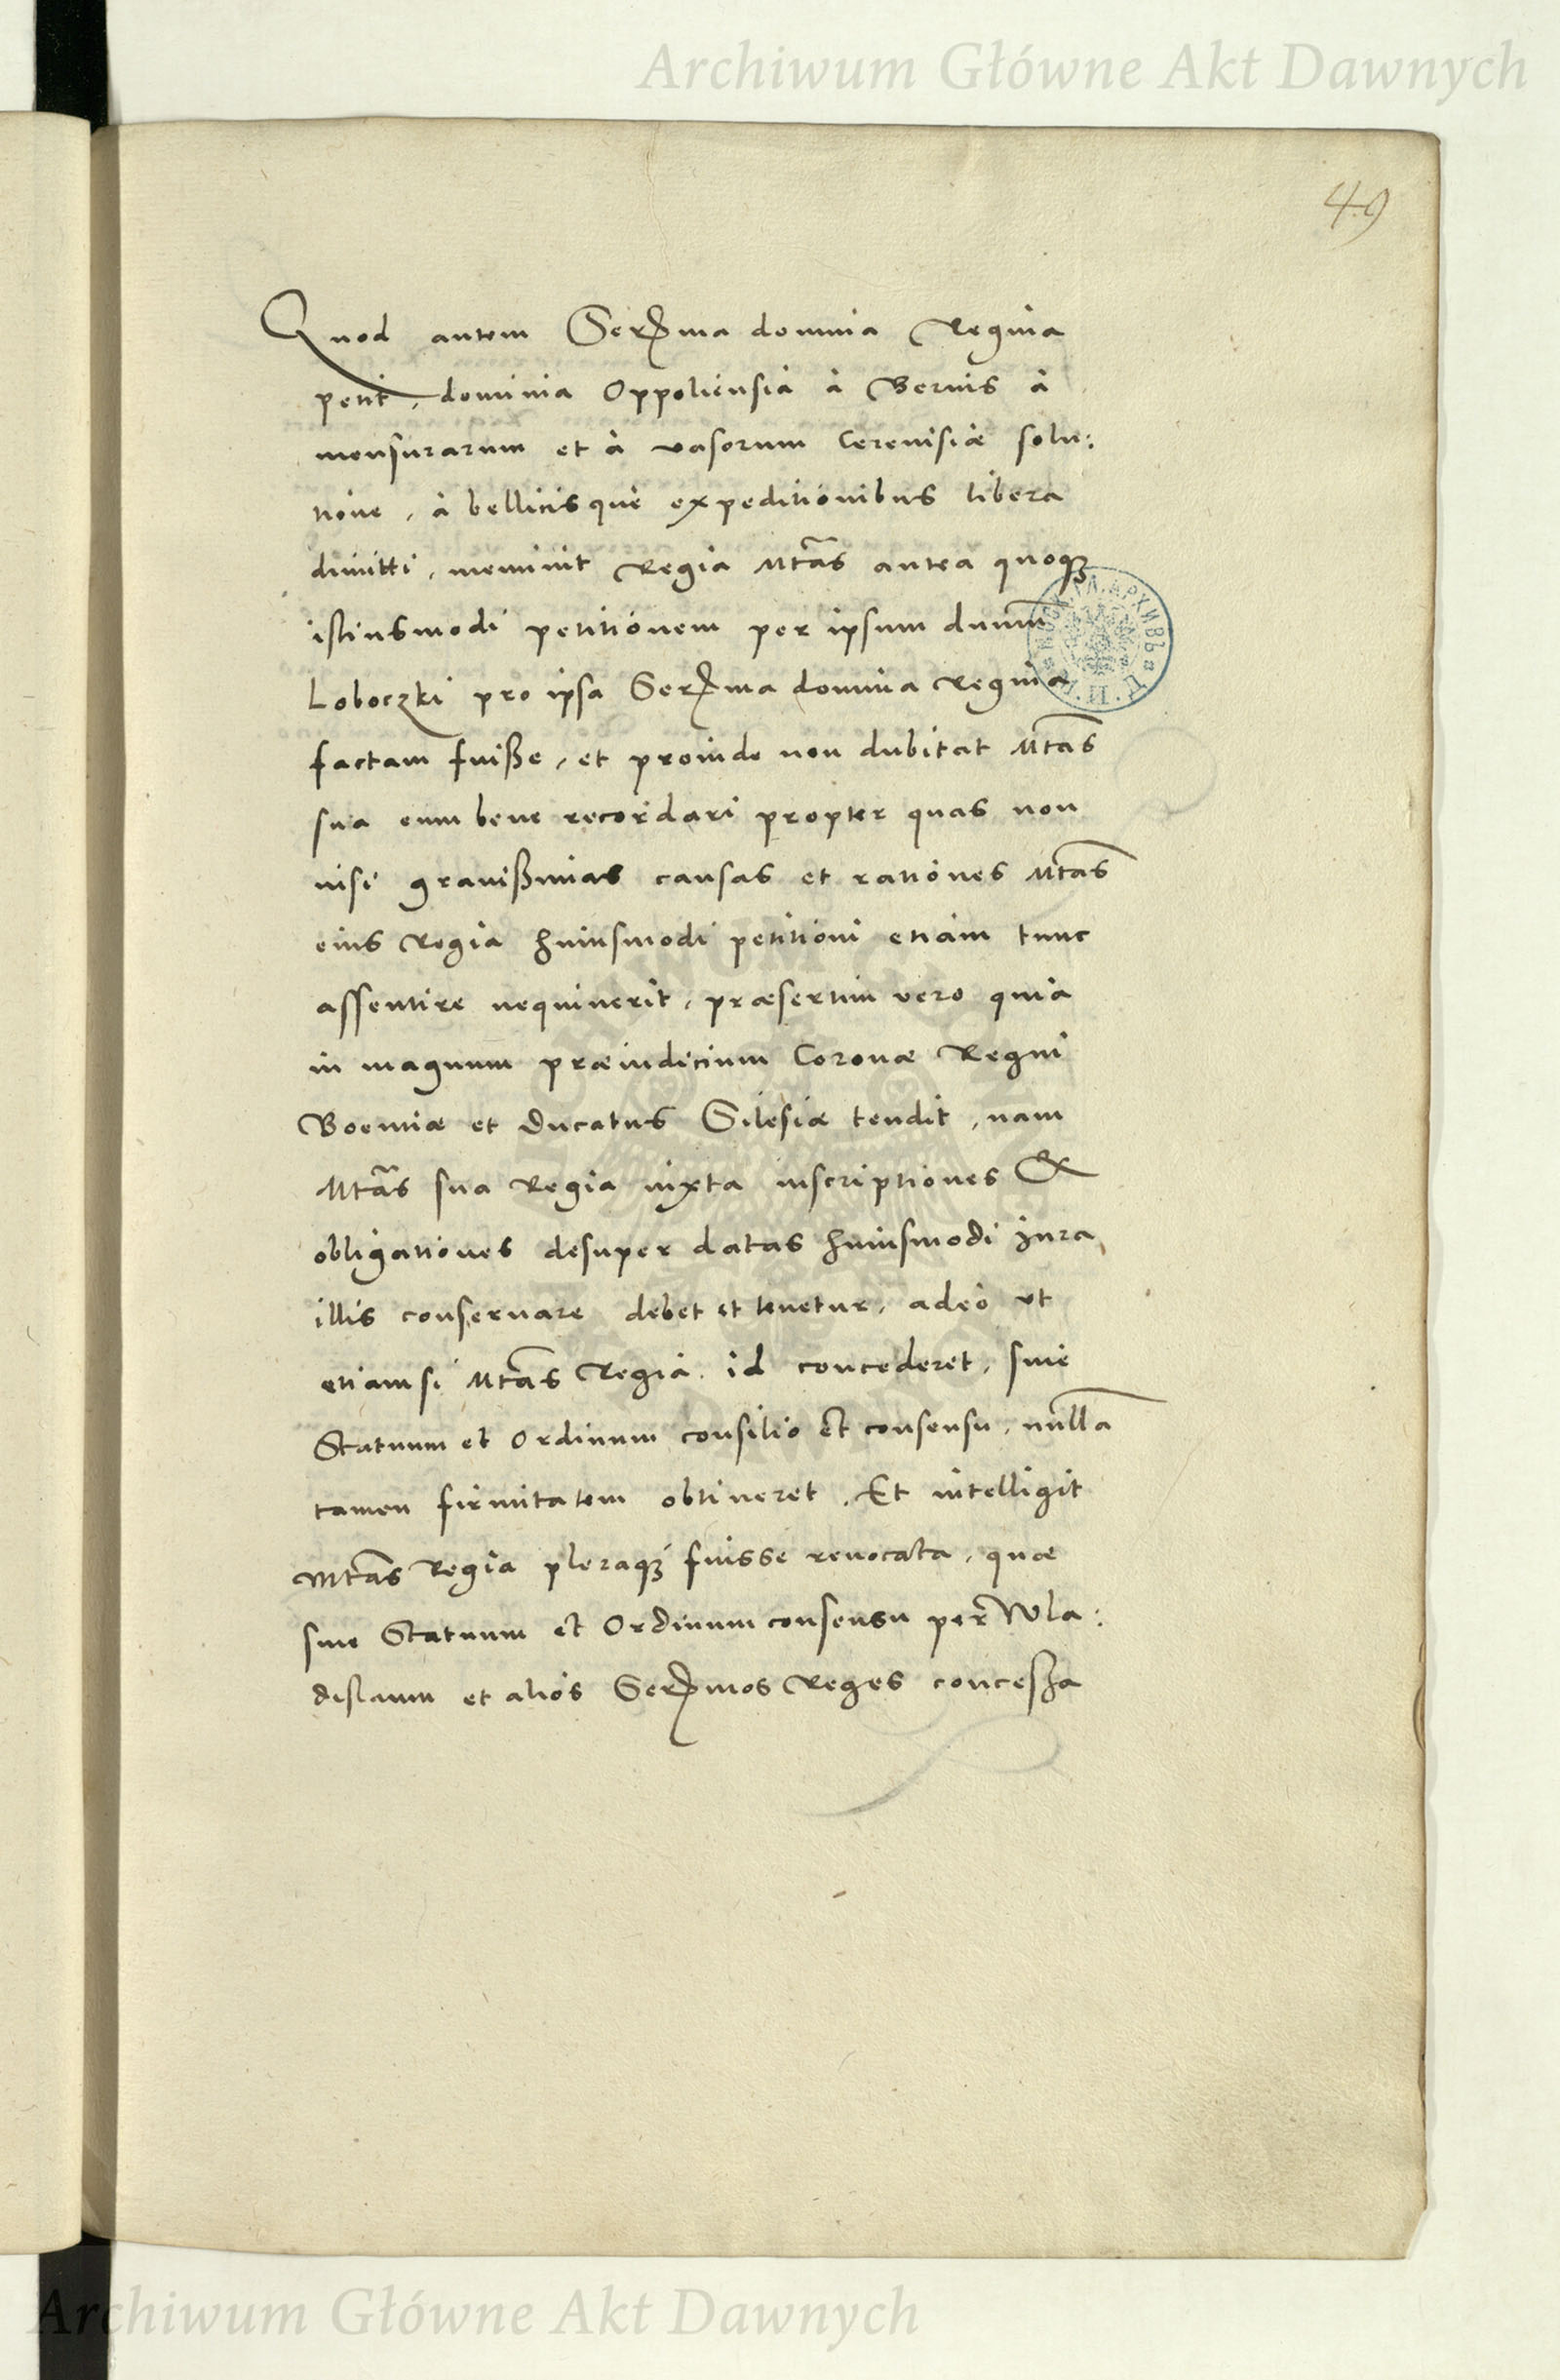 Archiwum Główne Akt Dawnych
49
Quod autem Serma domina Regina
petit, dominia Oppoliensia à Bernis à
mensurarum et à vasorum Cereuisiæ solu:
tione, à bellicisque expeditionibus libera
dimitti, meminit Regia Mtas antea quoq;
istiusmodi petitionem per ipsum dnum
Loboczki pro ipsa Serma domina Regina
factam fuiße, et proinde non dubitat Mtas
sua eum bene recordari propter quas non
nisi grauißimas causas et rationes Mtas
eius Regia huiusmodi petitioni etiam tunc
assentire nequiuerit, præsertim vero quia
in magnum præiudicium Coronæ Regni
Boemiæ et Ducatus Silesiæ tendit, nam
Mtas sua Regia iuxta inscriptiones &
obligationes desuper datas huiusmodi jura
illis conseruare debet et tenetur, adeò vt
etiamsi Mtas Regia id concederet, sine
Statuum et Ordinum consilio et consensu, nulla
tamen firmitatem obtineret. Et intelligit
Mtas Regia pleraq; fuisse reuocata, quæ
sine Statuum et Ordinum consensu per Wla:
dislaum et aliós Sermos Reges conceßa
Archiwum Główne Akt Dawnych